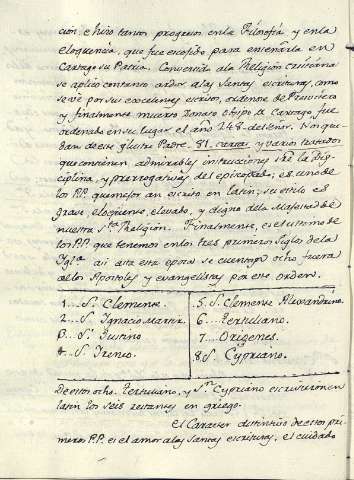 cion, e hizo tantos progresos en la Filosofia y en la
eloquencia, que fue escogido para enseñarla en
Cartago su Patria. Convertido a la Religion cristiana
se aplicó con tanto ardor a las Santas escrituras, como
se ve por sus excelentes escritos, ordenose de Presvitero
y finalmente muerto Donato obispo de Cartago fue
ordenado en su lugar el año 248 del Señor. Nos que
dan de este ilustre Padre 81 cartas y varios tratados
que contienen admirables instrucciones sre la Dis
ciplina, y prerrogativas del episcopado; es uno de
los P.P. que mejor an escrito en latin; su estilo es
grave, eloquente, elevado, y digno de la Majestad de
nuestra Sta Religion. Finalmente, es el ultimo de
los P.P. que tenemos en los tres primeros siglos de la
Igª asi asta esta epoca se cuentan ocho fuera
de los Apostoles y evangelistas por este orden.
1... Sn Clemente.
2... Sn Ignacio Martir.
3... Sn Justino
4... Sn Ireneo.
5. Sn Clemente Alexandrino.
6... Tertuliano.
7... Origenes.
8. Sn Cypriano.
De estos ocho. Tertuliano, y Sn Cypriano escrivieron en
latin los seis restantes en griego.
El Caracter distintivo de estos pri
meros P.P. es el amor a las Santas escrituras, el cuidado